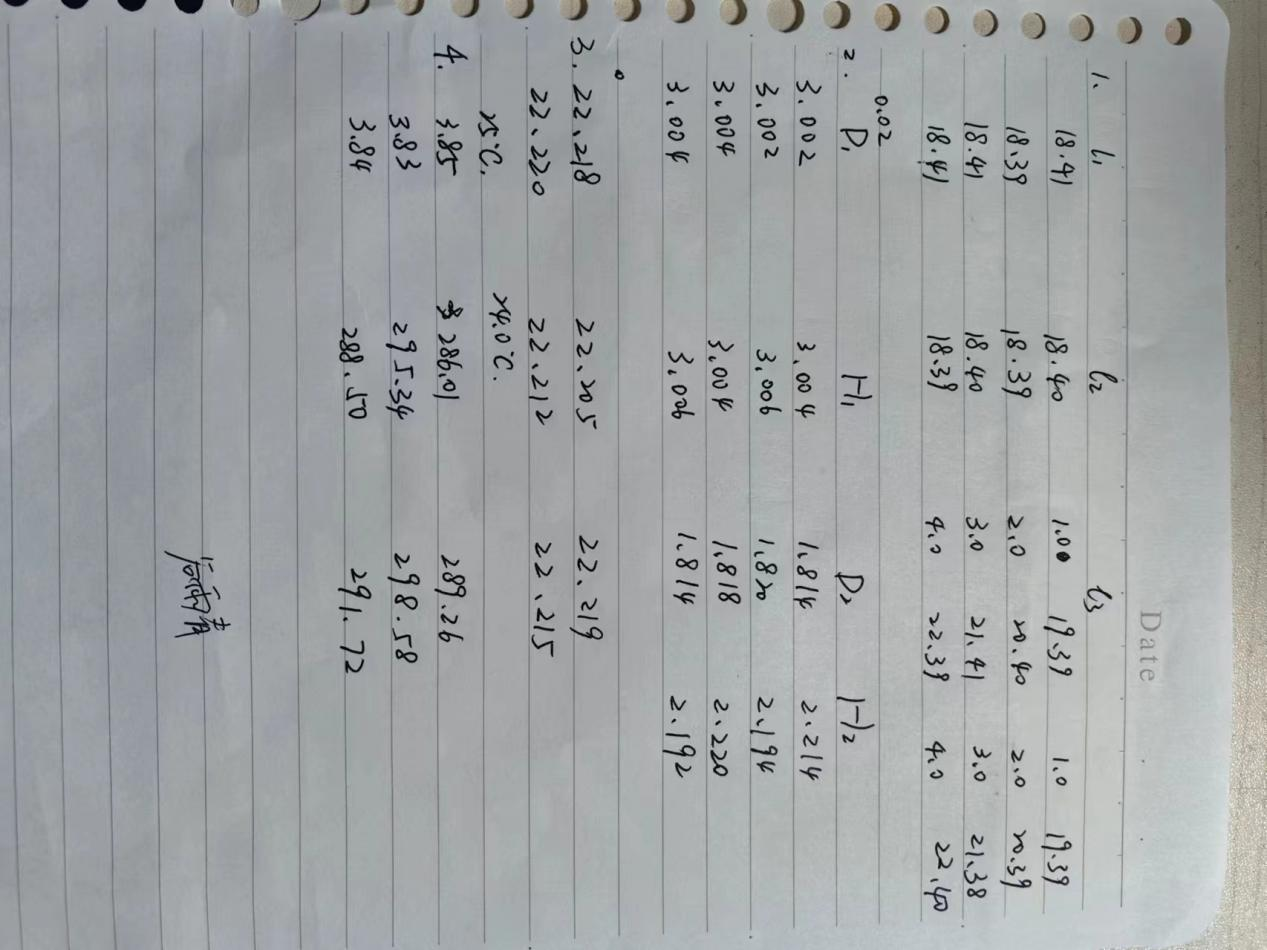 Date
1. l₁ l₂ l₃
18.41 18.40 1.00 19.39 1.0 19.39
18.39 18.39 2.0 20.40 2.0 20.39
18.41 18.40 3.0 21.41 3.0 21.38
18.41 18.39 4.0 22.39 4.0 22.40
0.02
2. D₁ H₁ D₂ H₂
3.002 3.004 1.814 2.214
3.002 3.006 1.820 2.194
3.004 3.004 1.818 2.220
3.004 3.006 1.814 2.192
3. 22.218 22.205 22.219
22.220 22.212 22.215
25℃. 24.0℃.
4. 3.85 286.01 289.26
3.83 295.34 298.58
3.84 288.50 291.72